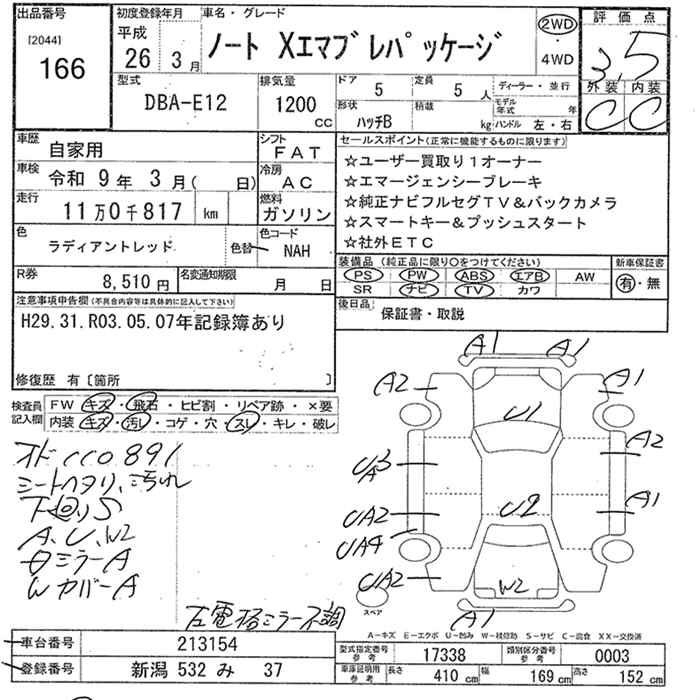 出品番号
[2044]
166
初度登録年月
平成
26年 3月
車名・グレード
ノート Xエマブレパッケージ
2WD
・
4WD
評価点
3.5
外装 内装
C C
型式
DBA-E12
排気量
1200
cc
ドア
5
定員
5 人
ディーラー・並行
形状
ハッチB
積載
kg
モデル年式 年
ハンドル 左・右
車歴
自家用
シフト
FAT
車検
令和 9年 3月( 日)
冷房
AC
走行
11万0千817 km
燃料
ガソリン
色
ラディアントレッド
色替
色コード
NAH
R券
8,510円
名変通知期限
月 日
セールスポイント(正常に機能するものに限ります)
☆ユーザー買取り1オーナー
☆エマージェンシーブレーキ
☆純正ナビフルセグTV&バックカメラ
☆スマートキー&プッシュスタート
☆社外ETC
装備品 (純正品に限り○をつけてください)
PS PW ABS エアB AW
SR ナビ TV カワ
新車保証書
有・無
後日品
保証書・取説
注意事項申告欄(不具合内容等は具体的に記入して下さい)
H29.31.R03.05.07年記録簿あり
修復歴 有〔箇所 〕
検査員記入欄
FW キズ・飛石・ヒビ割・リペア跡・×要
内装 キズ・汚レ・コゲ・穴・スレ・キレ・破レ
シートヘタリ、汚れ
下廻りS
A、U、W2
ミラーA
WカバーA
左電格ミラー不調
A1 A1
A2 A1
U1
A2
UA3
U2
UA2 A1
UA4
UA2
W2
A1
スペア
A-キズ E-エクボ U-凹み W-板修助 S-サビ C-腐食 XX-交換済
車台番号
213154
登録番号
新潟 532 み 37
型式指定番号
参考
17338
類別区分番号
参考
0003
車庫証明用
参考
長さ 410 cm
幅 169 cm
高さ 152 cm